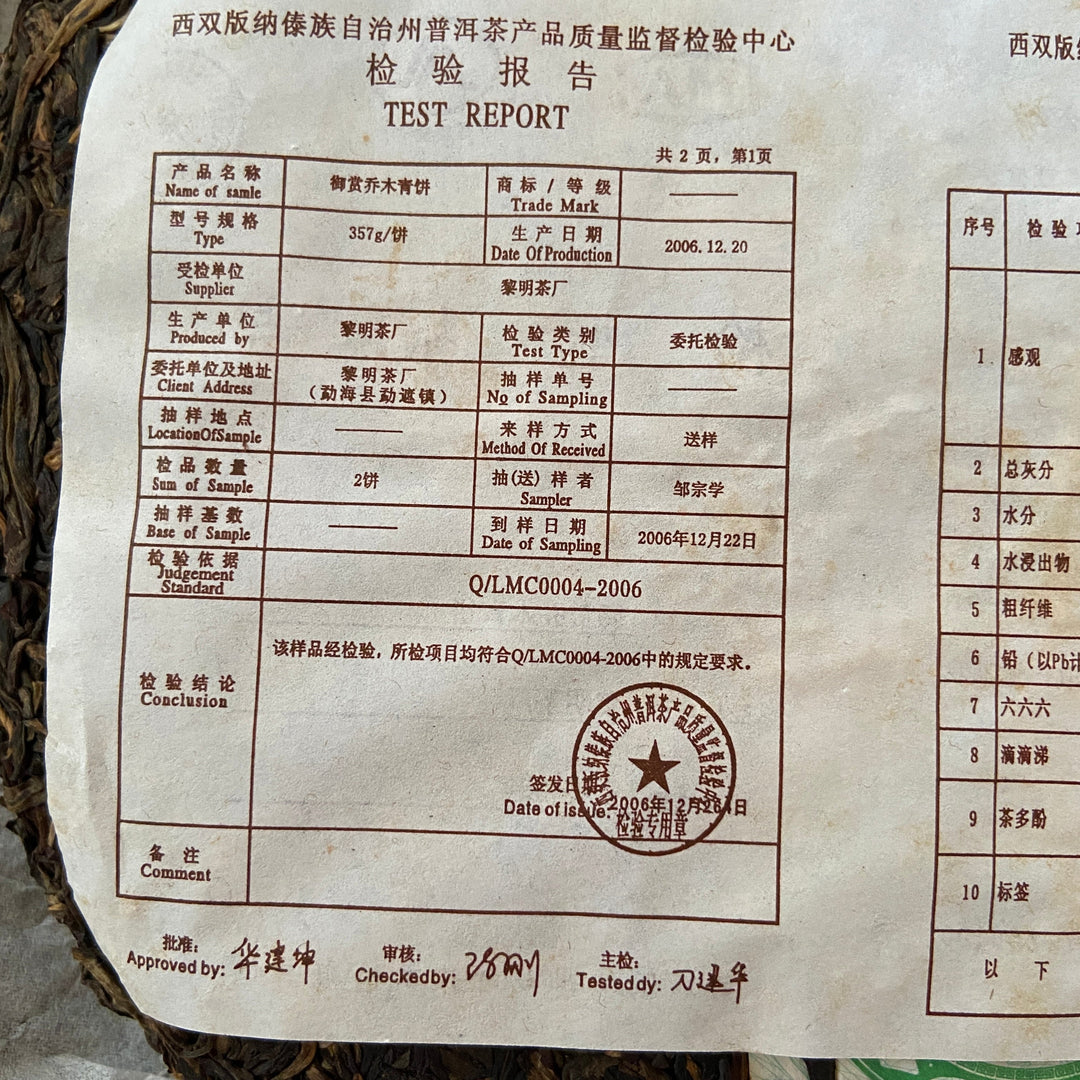 西双版纳傣族自治州普洱茶产品质量监督检验中心
检 验 报 告
TEST REPORT
共 2 页，第1页
产品名称 御赏乔木青饼 商标/等级 ———
Name of samle Trade Mark
型号规格 357g/饼 生产日期 2006.12.20
Type Date Of Production
受检单位 黎明茶厂
Supplier
生产单位 黎明茶厂 检验类别 委托检验
Produced by Test Type
委托单位及地址 黎明茶厂 抽样单号 ———
Client Address （勐海县勐遮镇） No of Sampling
抽样地点 ——— 来样方式 送样
LocationOfSample Method Of Received
检品数量 2饼 抽(送)样者 邹宗学
Sum of Sample Sampler
抽样基数 ——— 到样日期 2006年12月22日
Base of Sample Date of Sampling
检验依据 Q/LMC0004-2006
Judgement
Standard
该样品经检验，所检项目均符合Q/LMC0004-2006中的规定要求。
检验结论
Conclusion
西双版纳傣族自治州普洱茶产品质量监督检验中心
签发日
Date of issue: 2006年12月26日
检验专用章
备 注
Comment
批准： 华建坤 审核： 主检：
Approved by: Checkedby: Testeddy:
西双版
序号 检 验
1 感观
2 总灰分
3 水分
4 水浸出物
5 粗纤维
6 铅（以Pb计
7 六六六
8 滴滴涕
9 茶多酚
10 标签
以 下